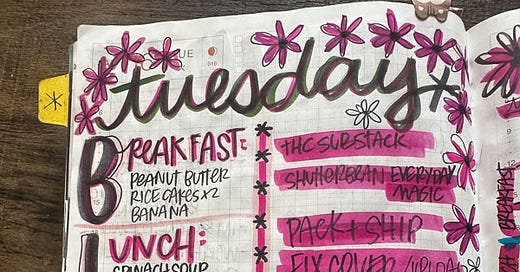 tuesday
BREAKFAST:
PEANUT BUTTER
RICE CAKES x2
BANANA
LUNCH:
SPINACH SOUP
THC SUBSTACK
SHUTTERBEAN EVERYDAY
MAGIC
PACK + SHIP
FIX COVER
BREAKFAST